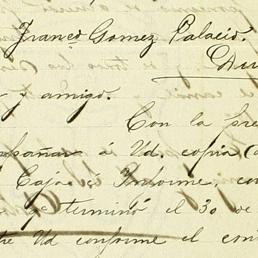 Franco Gomez Palacio.
Du
y amigo.
Con la pre
pañar á Ud. copia (
Caja é Informe, co
terminó el 30 de
Ud conforme el